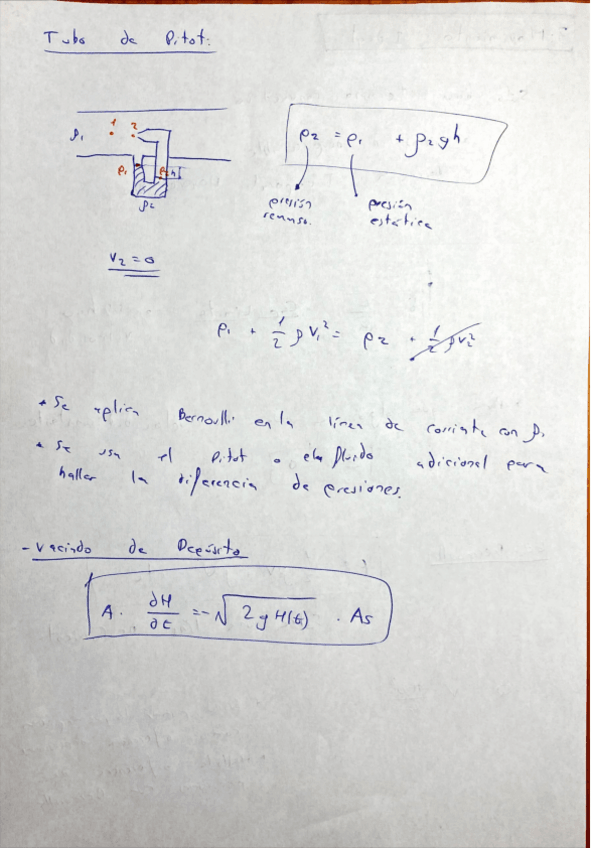 Tubo de Pitot:
ρ1 1 2
P1 P2 h
ρ2
P2 = P1 + ρ2gh
presión remanso. presión estática
V2 = 0
P1 + 1/2 ρ V1² = P2 + 1/2 ρV2²
* Se aplica Bernoulli en la línea de corriente con ρ1
* Se usa el Pitot o el fluido adicional para
hallar la diferencia de presiones.
- Vaciado de Depósito
A · ∂H/∂t = -√(2gH(t)) · As